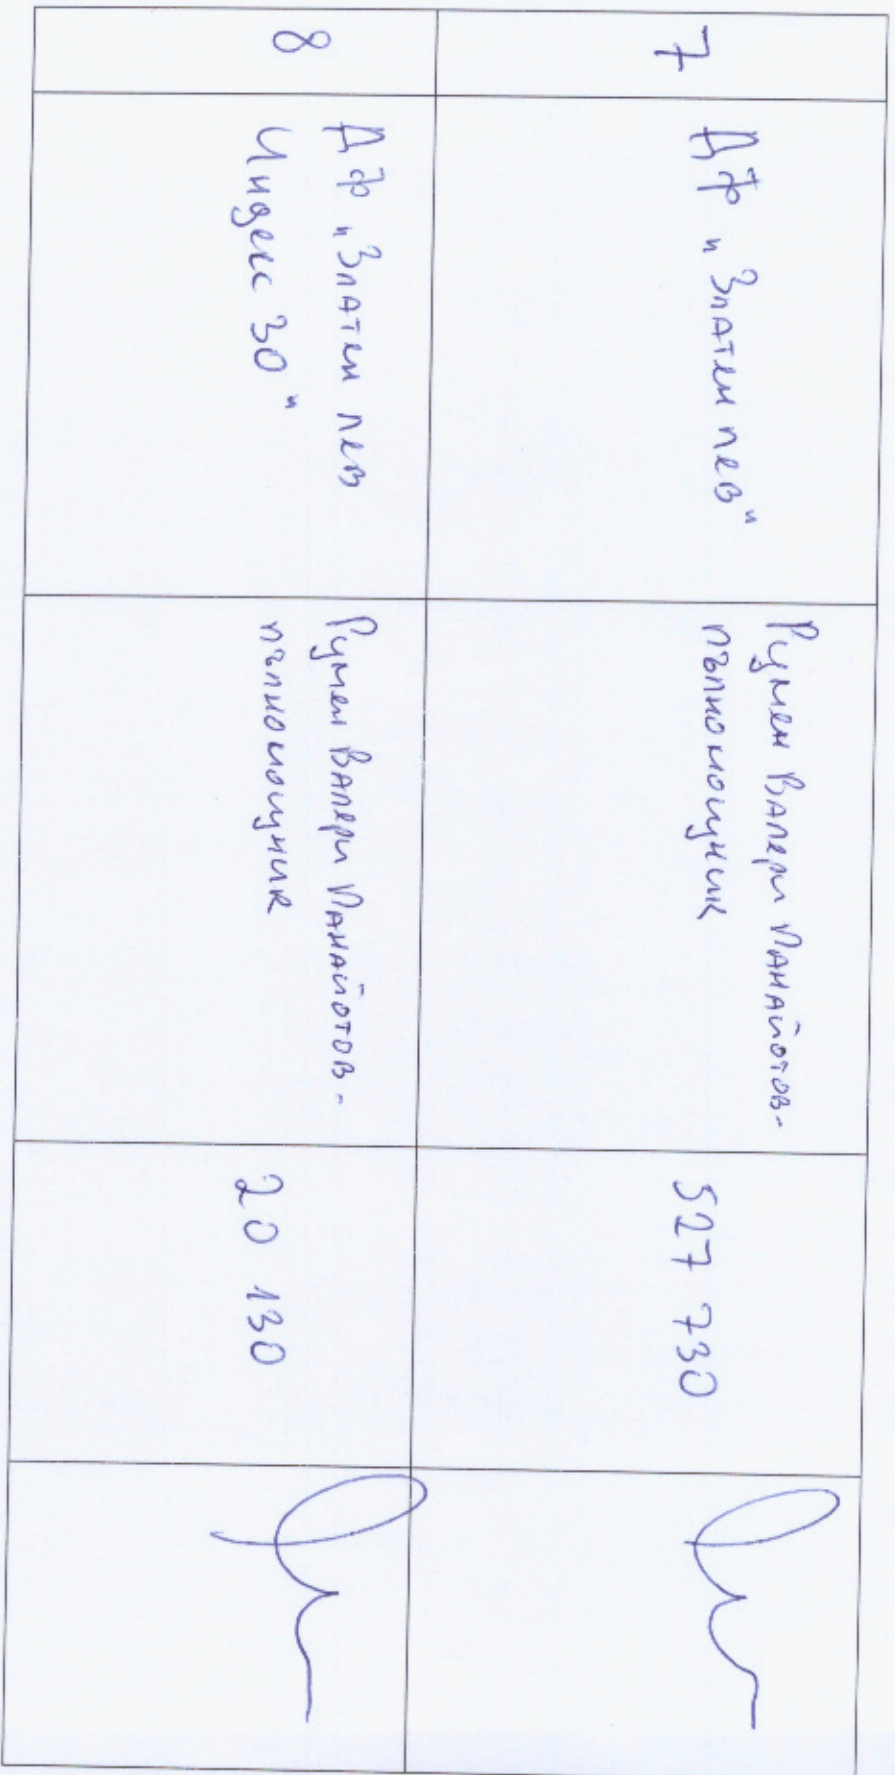 7
ДФ „Златен лев"
Румен Валери Панайотов-
пълномощник
527 730
8
ДФ „Златен лев
Индекс 30"
Румен Валери Панайотов-
пълномощник
20 130